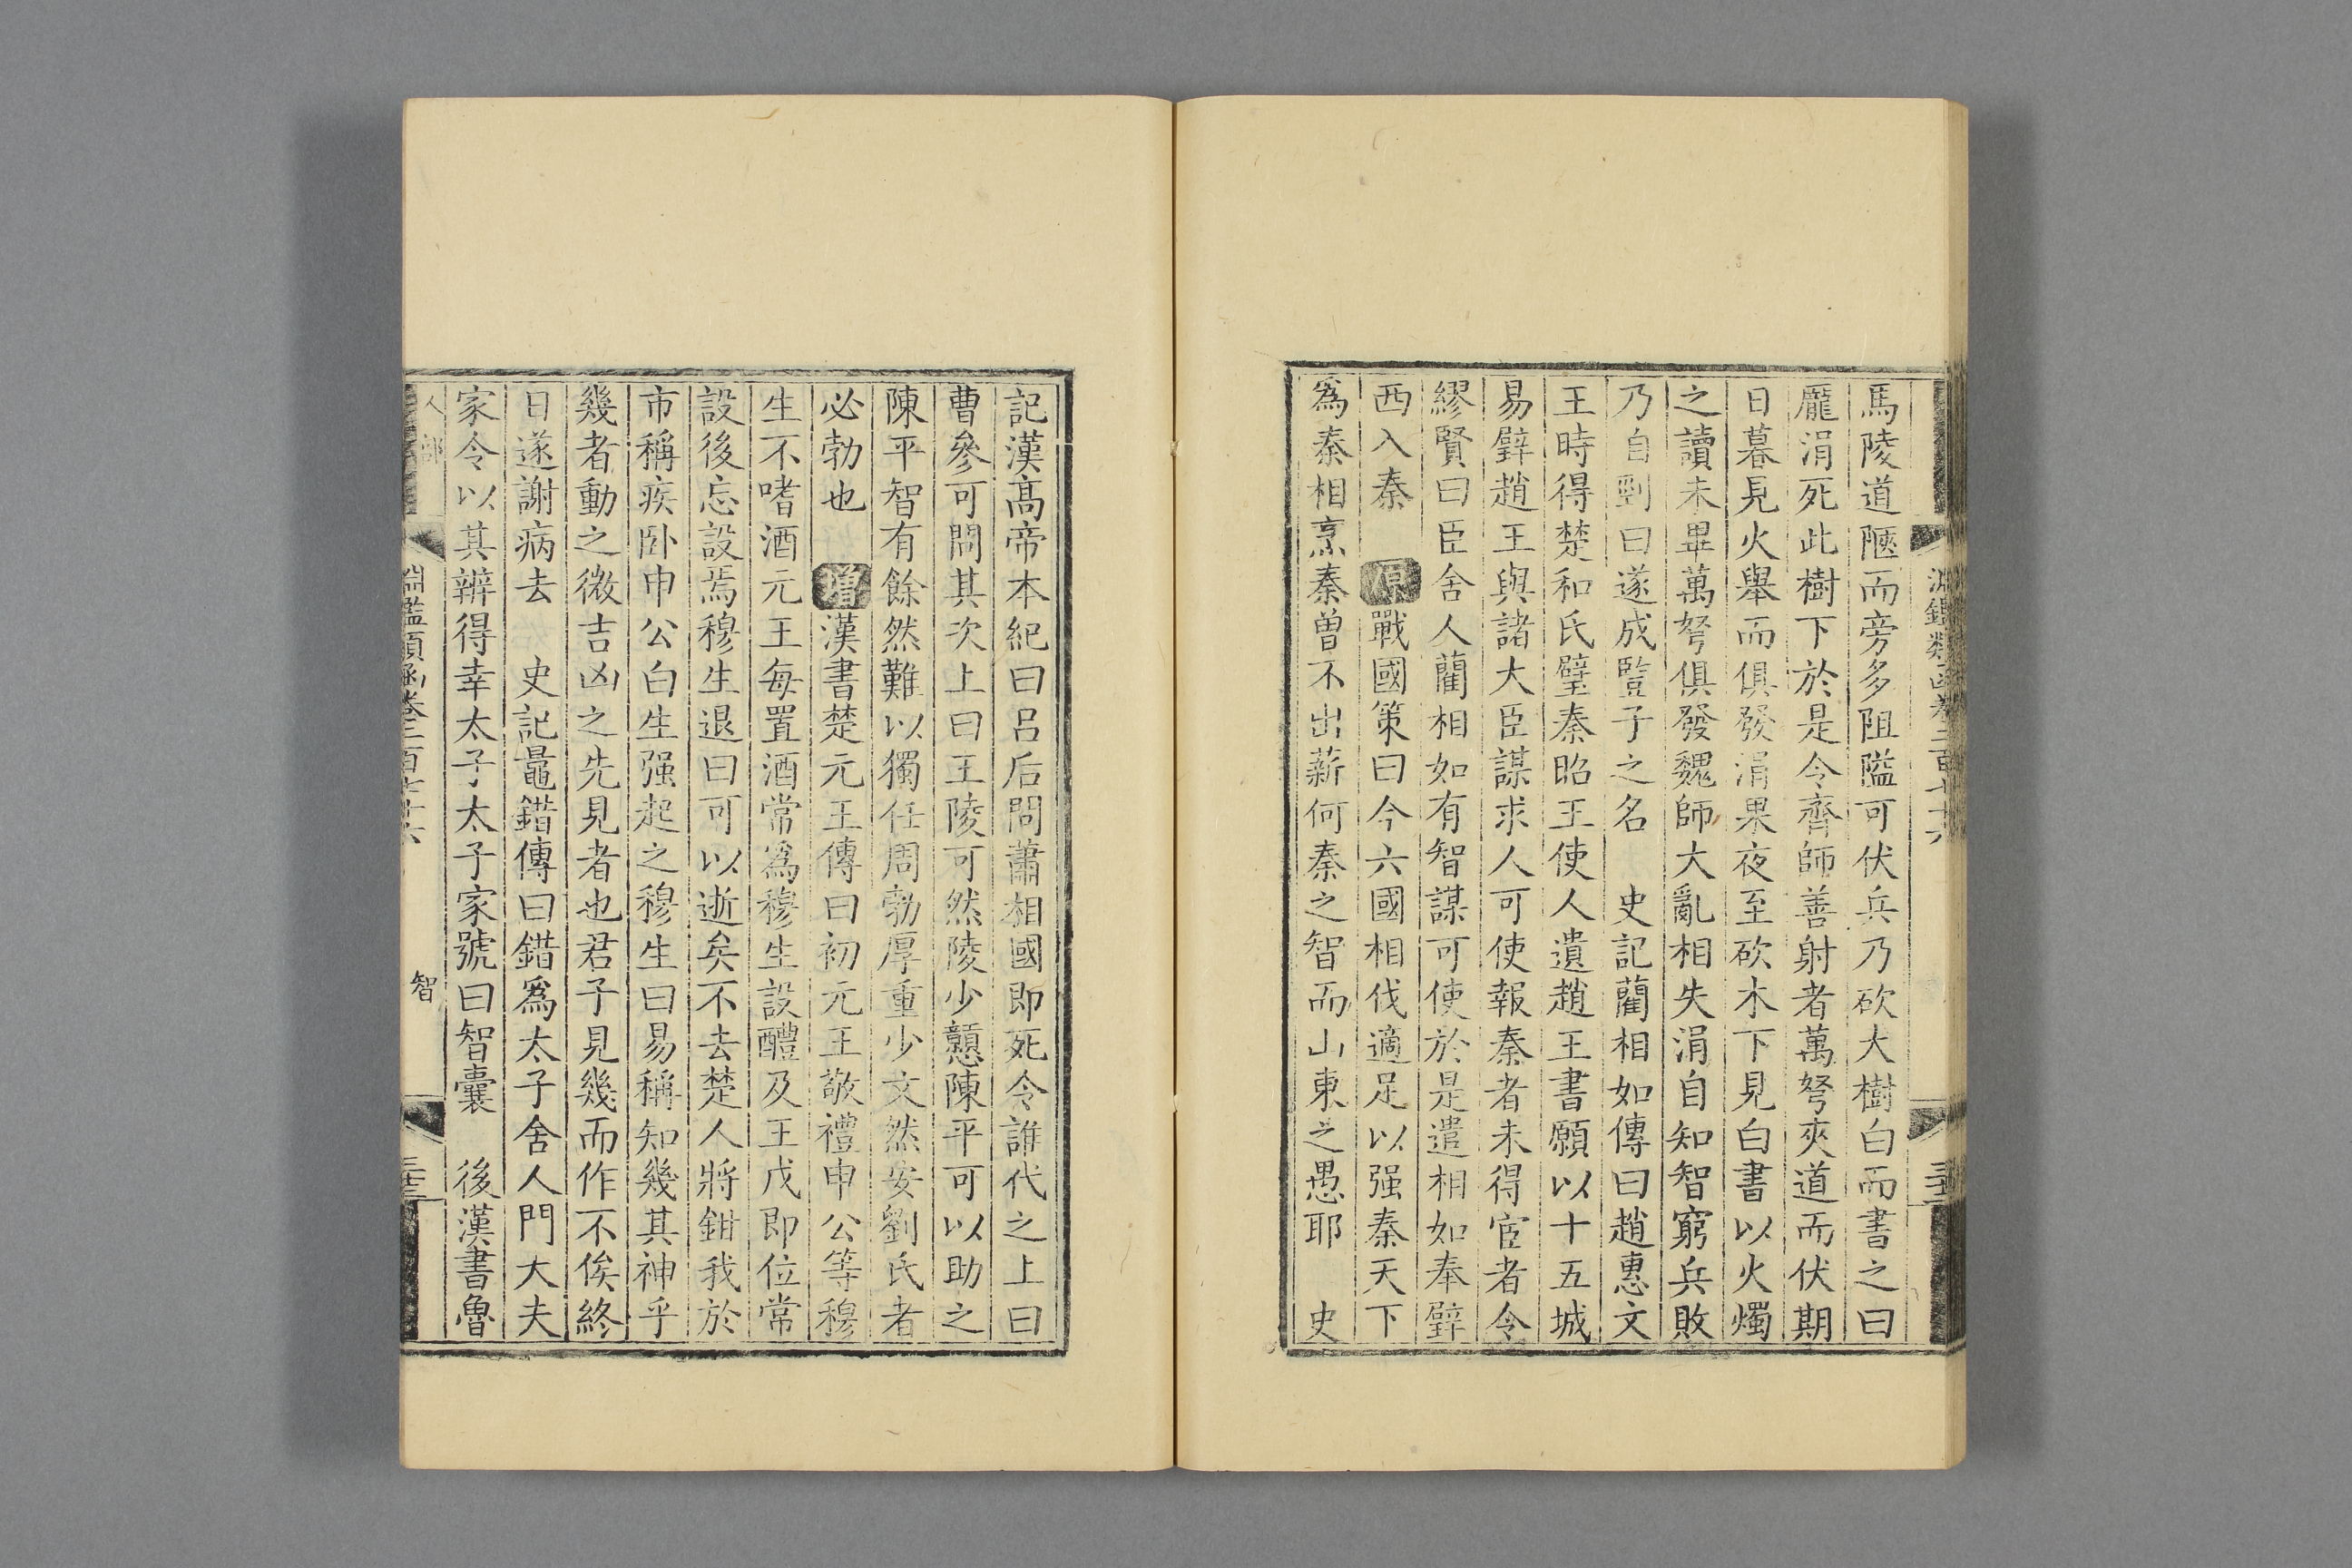 馬陵道陿而旁多阻隘可伏兵乃砍大樹白而書之曰
龐涓死此樹下於是令齊師善射者萬弩夾道而伏期
日暮見火舉而俱發涓果夜至砍木下見白書以火燭
之讀未畢萬弩俱發魏師大亂相失涓自知智窮兵敗
乃自剄曰遂成豎子之名　史記藺相如傳曰趙惠文
王時得楚和氏璧秦昭王使人遺趙王書願以十五城
易璧趙王與諸大臣謀求人可使報秦者未得宦者令
繆賢曰臣舍人藺相如有智謀可使於是遣相如奉璧
西入秦　原戰國策曰今六國相伐適足以强秦天下
爲秦相烹秦曾不出薪何秦之智而山東之愚耶　史
記漢高帝本紀曰呂后問蕭相國即死令誰代之上曰
曹參可問其次上曰王陵可然陵少戇陳平可以助之
陳平智有餘然難以獨任周勃厚重少文然安劉氏者
必勃也　增漢書楚元王傳曰初元王敬禮申公等穆
生不嗜酒元王每置酒常爲穆生設醴及王戊即位常
設後忘設焉穆生退曰可以逝矣不去楚人將鉗我於
市稱疾卧申公白生强起之穆生曰易稱知幾其神乎
幾者動之微吉凶之先見者也君子見幾而作不俟終
日遂謝病去　史記鼂錯傳曰錯爲太子舍人門大夫
家令以其辨得幸太子太子家號曰智囊　後漢書魯
人部　淵鑑類函卷三百七十六　智